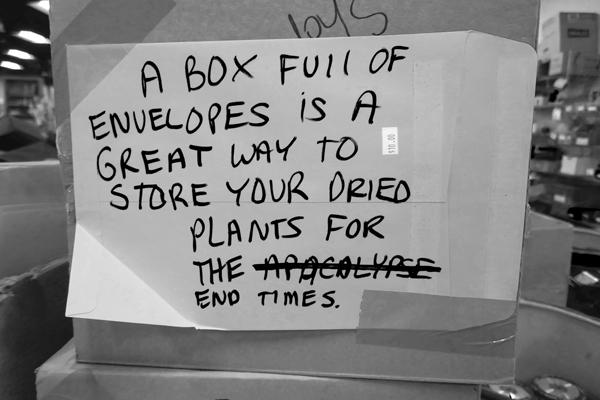 oys
A BOX FUll OF
ENVELOPES iS A
GREAT WAY TO
$10.00
STORE YOUR DRIED
PLANTS FOR
THE APACOLYPSE
END TIMES.